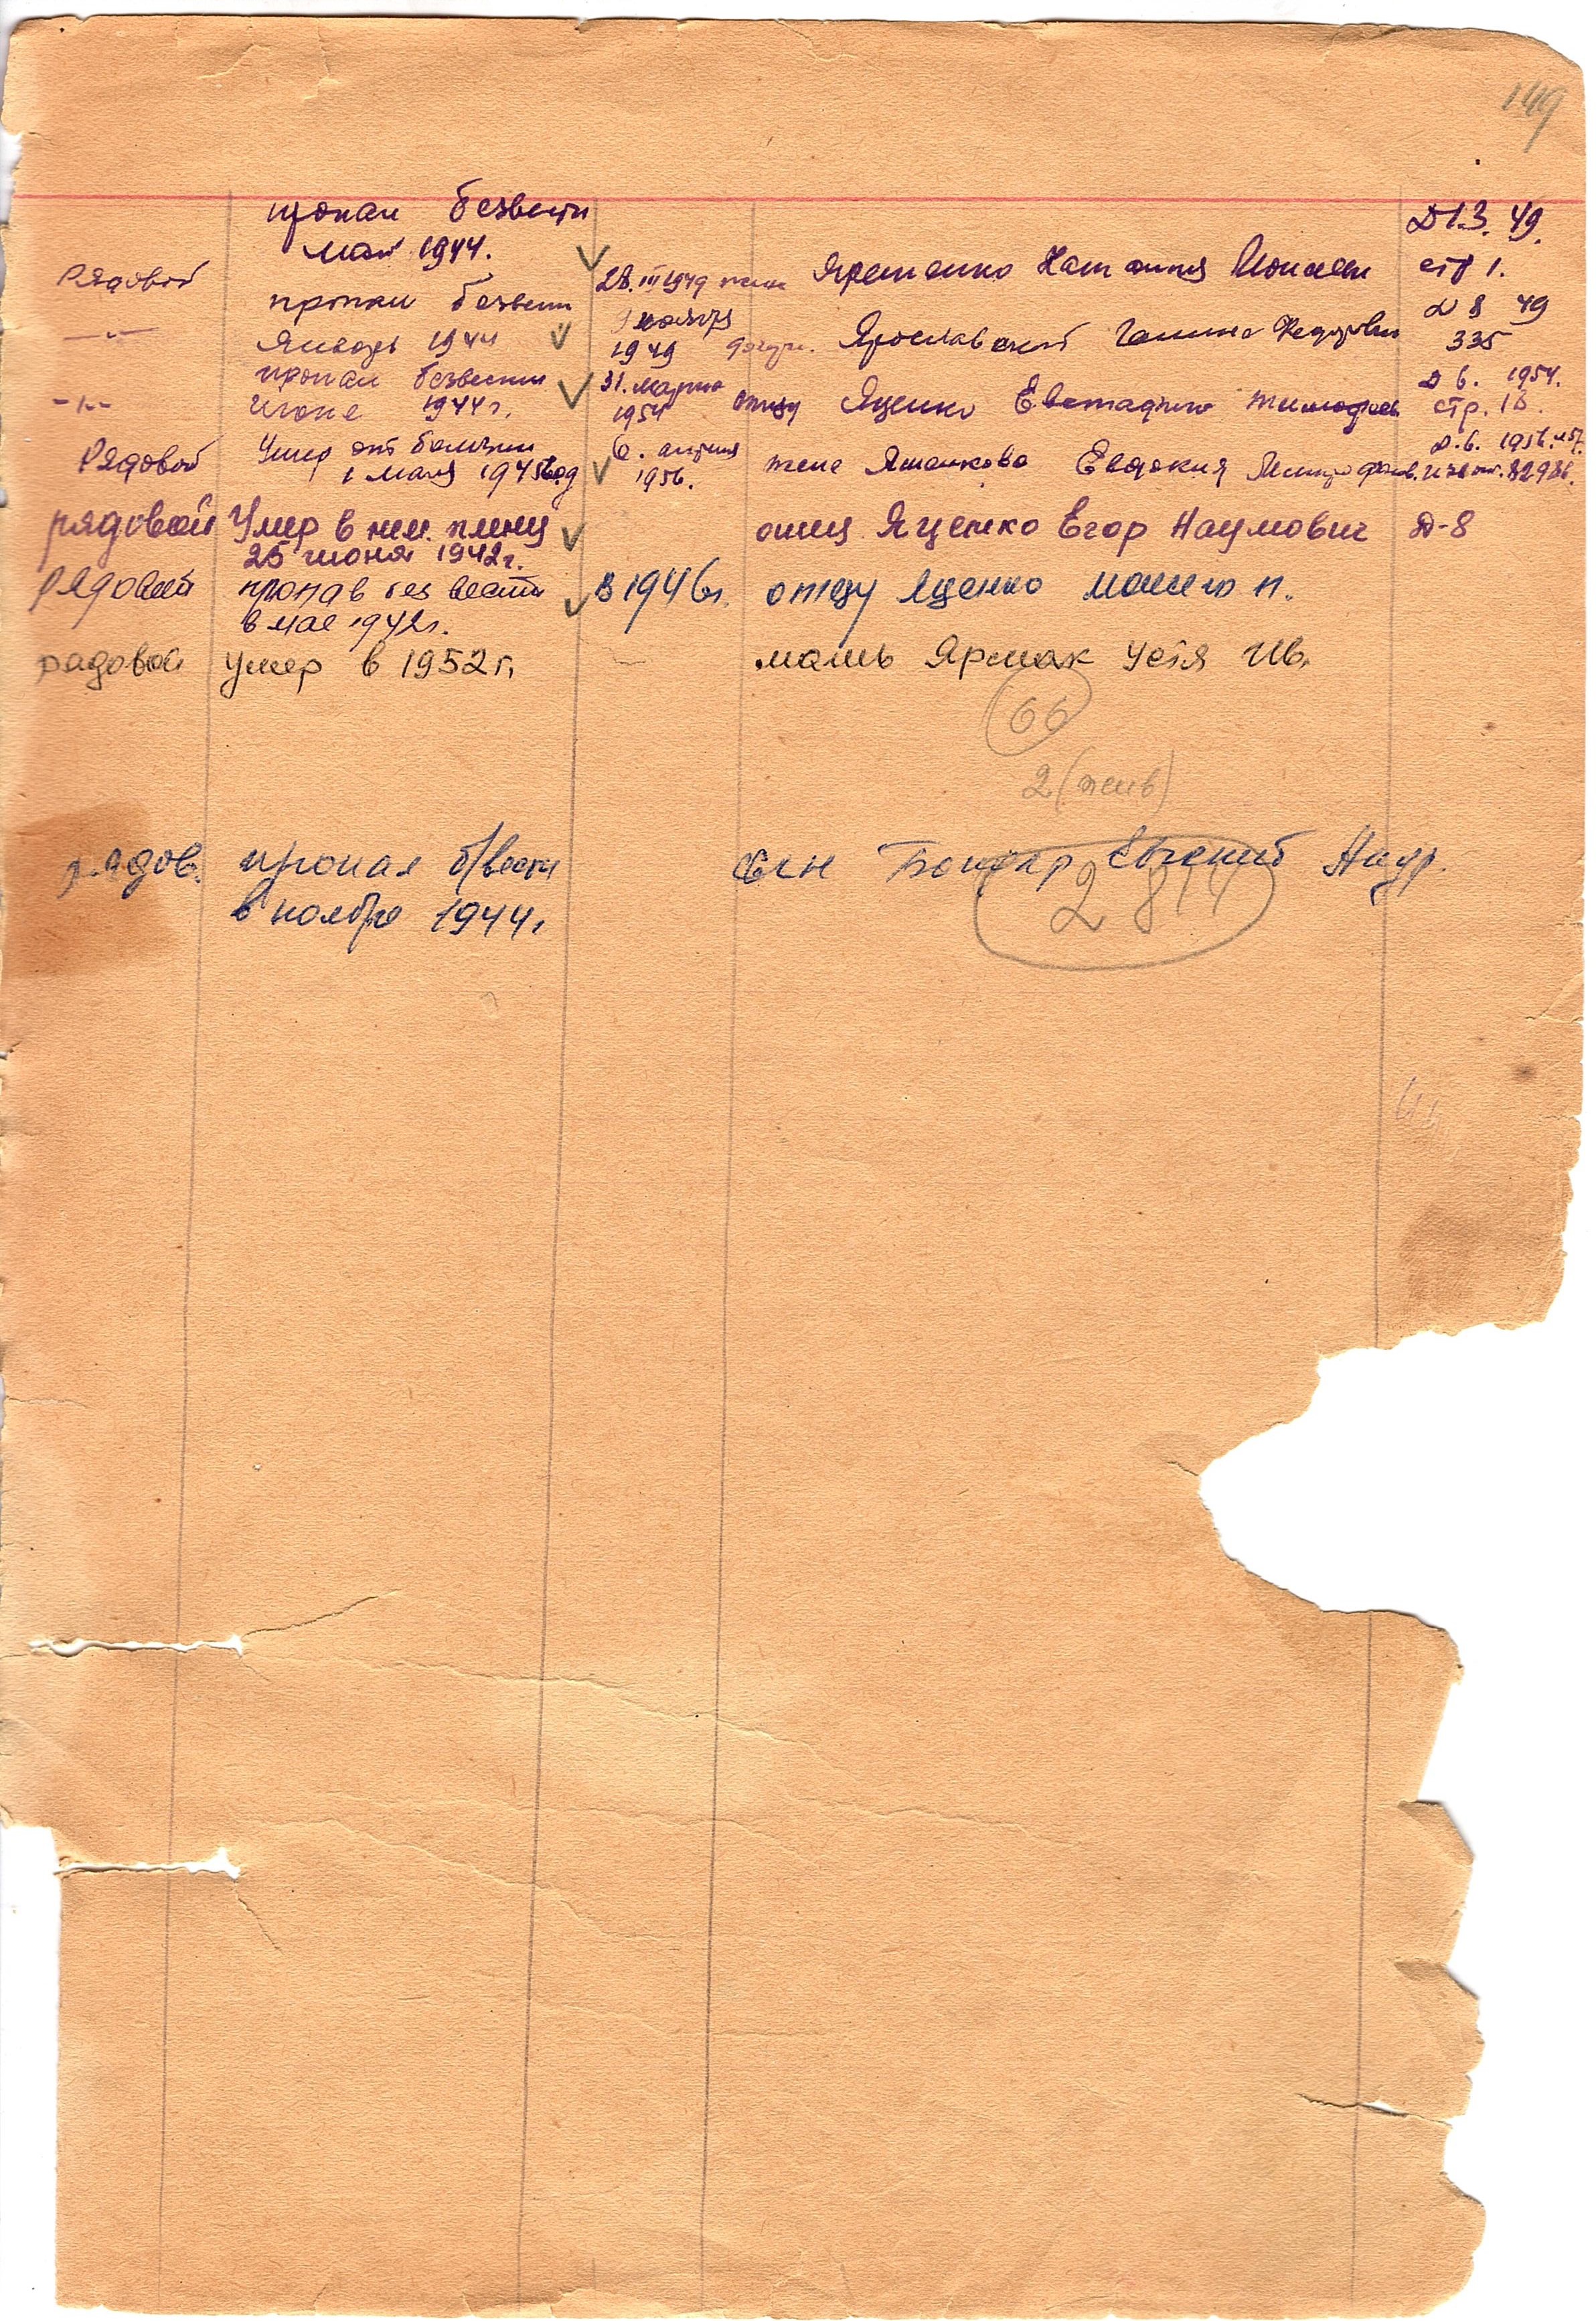 149
пропал безвести Д 1.3. 49.
май 1944.
Рядовой 28.III 1949 жене Яременко Наталия стр 1.
пропал безвести 9 Д 8 49
—"— Январь 1944 1949 дочери. Ярославской Галина Федоровн 335
пропал безвести 31. марта Д 6. 1954.
—"— Июне 1944 г. 1954 отцу Яценко Евстафию Тимофеев стр. 18.
Умер от болезни 6. апреля Д. 6. 1956.
Рядовой 1 мая 1945 год 1956. жене Яшанкова Евдокия Митрофанов.
рядовой Умер в нем. плену отец Яценко Егор Наумович Д-8
25 июня 1942 г.
Рядовой пропав без вести В 1946 г. отцу Яценко п.
в мае 1942 г.
рядовой Умер в 1952 г. — мать Ярмак Устя Ив.
66
2 (жив)
рядов. пропал б/вести сын Евгений
в ноябре 1944 г.